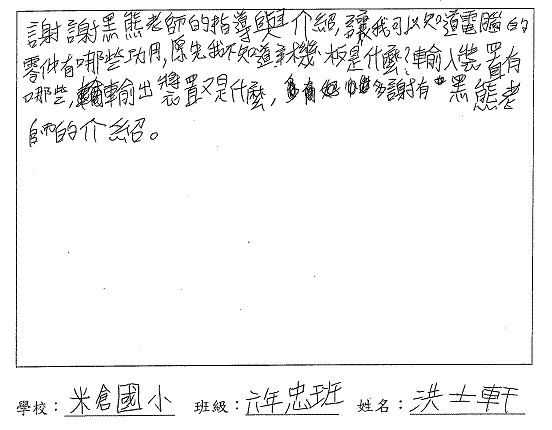 謝謝黑熊老師的指導與介紹,讓我可以知道電腦的
零件有哪些功用,原先我不知道主機板是什麼?輸入裝置有
哪些,輸出裝置又是什麼,多謝有黑熊老
師的介紹。
學校:米倉國小 班級:六年忠班 姓名:洪士軒